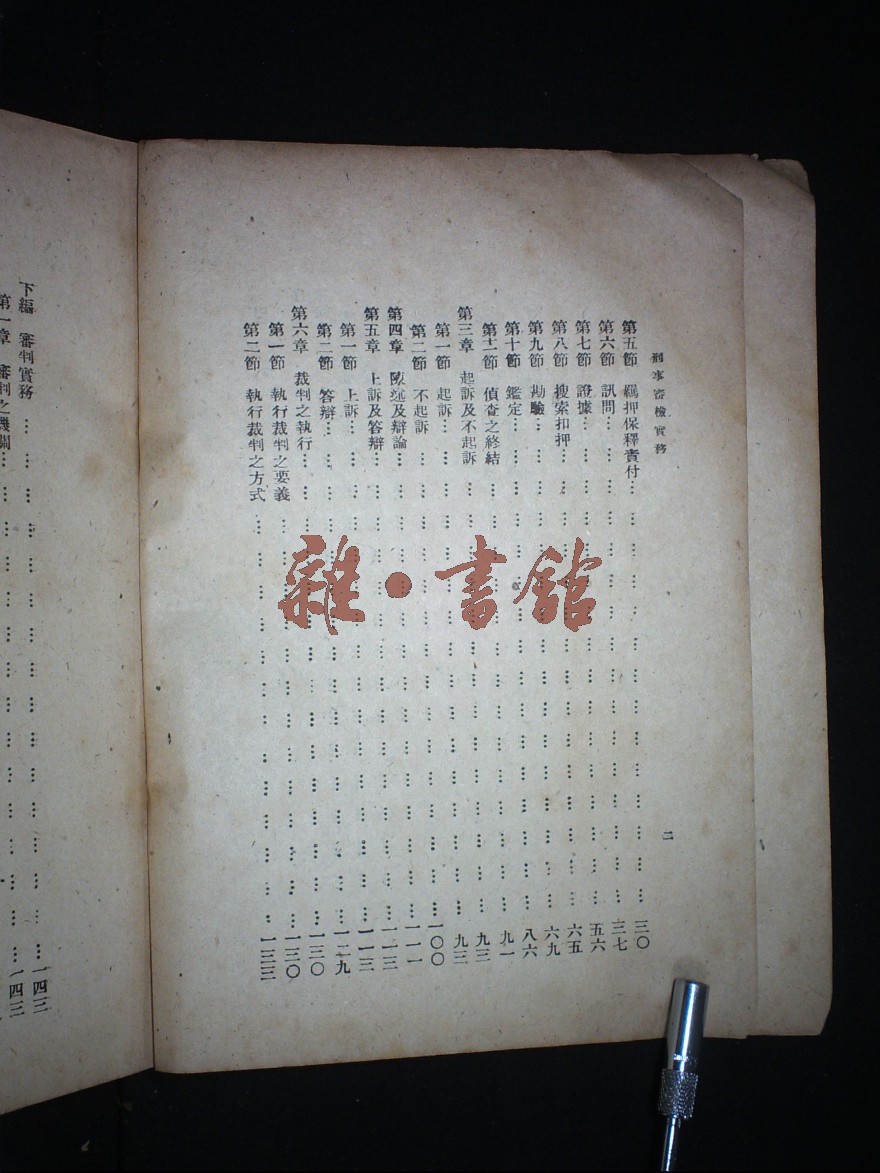 刑事審檢實務 二
第五節 羈押保釋責付 … 三〇
第六節 訊問 … 三七
第七節 證據 … 五六
第八節 搜索扣押 … 六五
第九節 勘驗 … 六九
第十節 鑑定 … 八六
第十一節 偵查之終結 … 九一
第三章 起訴及不起訴 … 九三
第一節 起訴 … 九三
第二節 不起訴 … 一〇〇
第四章 陳述及辯論 … 一一一
第五章 上訴及答辯 … 一一三
第一節 上訴 … 一一三
第二節 答辯 … 一二九
第六章 裁判之執行 … 一三〇
第一節 執行裁判之要義 … 一三〇
第二節 執行裁判之方式 … 一三三
下編 審判實務 … 一四三
第一章 審判之機關 … 一四三
雜·書館